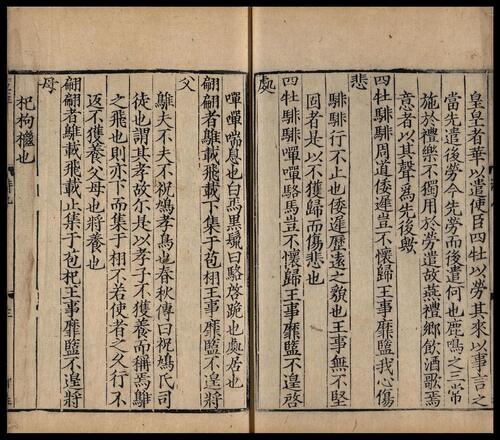 皇皇者華以遣使臣四牡以勞其來以事言之
當先遣後勞今先勞而後遣何也鹿鳴之三常
施於禮樂不獨用於勞遣故燕禮鄉飲酒歌焉
意者以其聲爲先後歟
四牡騑騑周道倭遲豈不懷歸王事靡盬我心傷
悲
騑騑行不止也倭遲歷遠之貌也王事無不堅
固者是以不獲歸而傷悲也
四牡騑騑嘽嘽駱馬豈不懷歸王事靡盬不遑啓
處
嘽嘽喘息也白馬黑鬛曰駱啓跪也處居也
翩翩者鵻載飛載下集于苞栩王事靡盬不遑將
父
鵻夫不夫不祝鳩孝鳥也春秋傳曰祝鳩氏司
徒也謂其孝故尓是以孝子不獲養而稱焉鵻
之飛也則亦下而集于栩不若使者之久行不
返不獲養父母也將養也
翩翩者鵻載飛載止集于苞杞王事靡盬不遑將
母
杞枸檵也